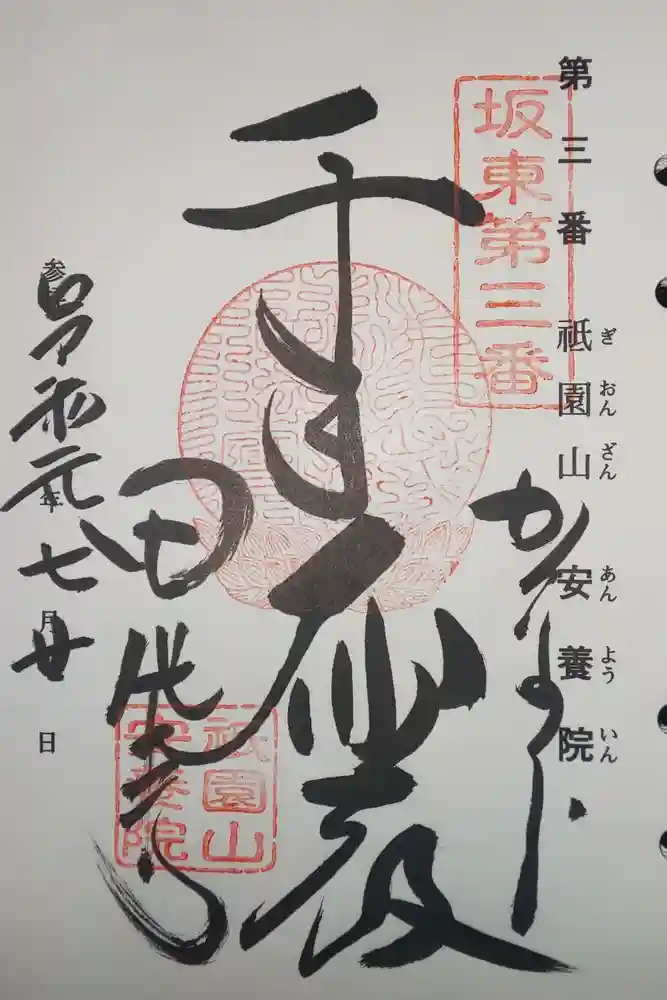 第三番 祇園山 安養院
ぎおんざん あんよういん
坂東第三番
かまくら
千手
田代寺
祇園山
安養院
令和元年七月廿日